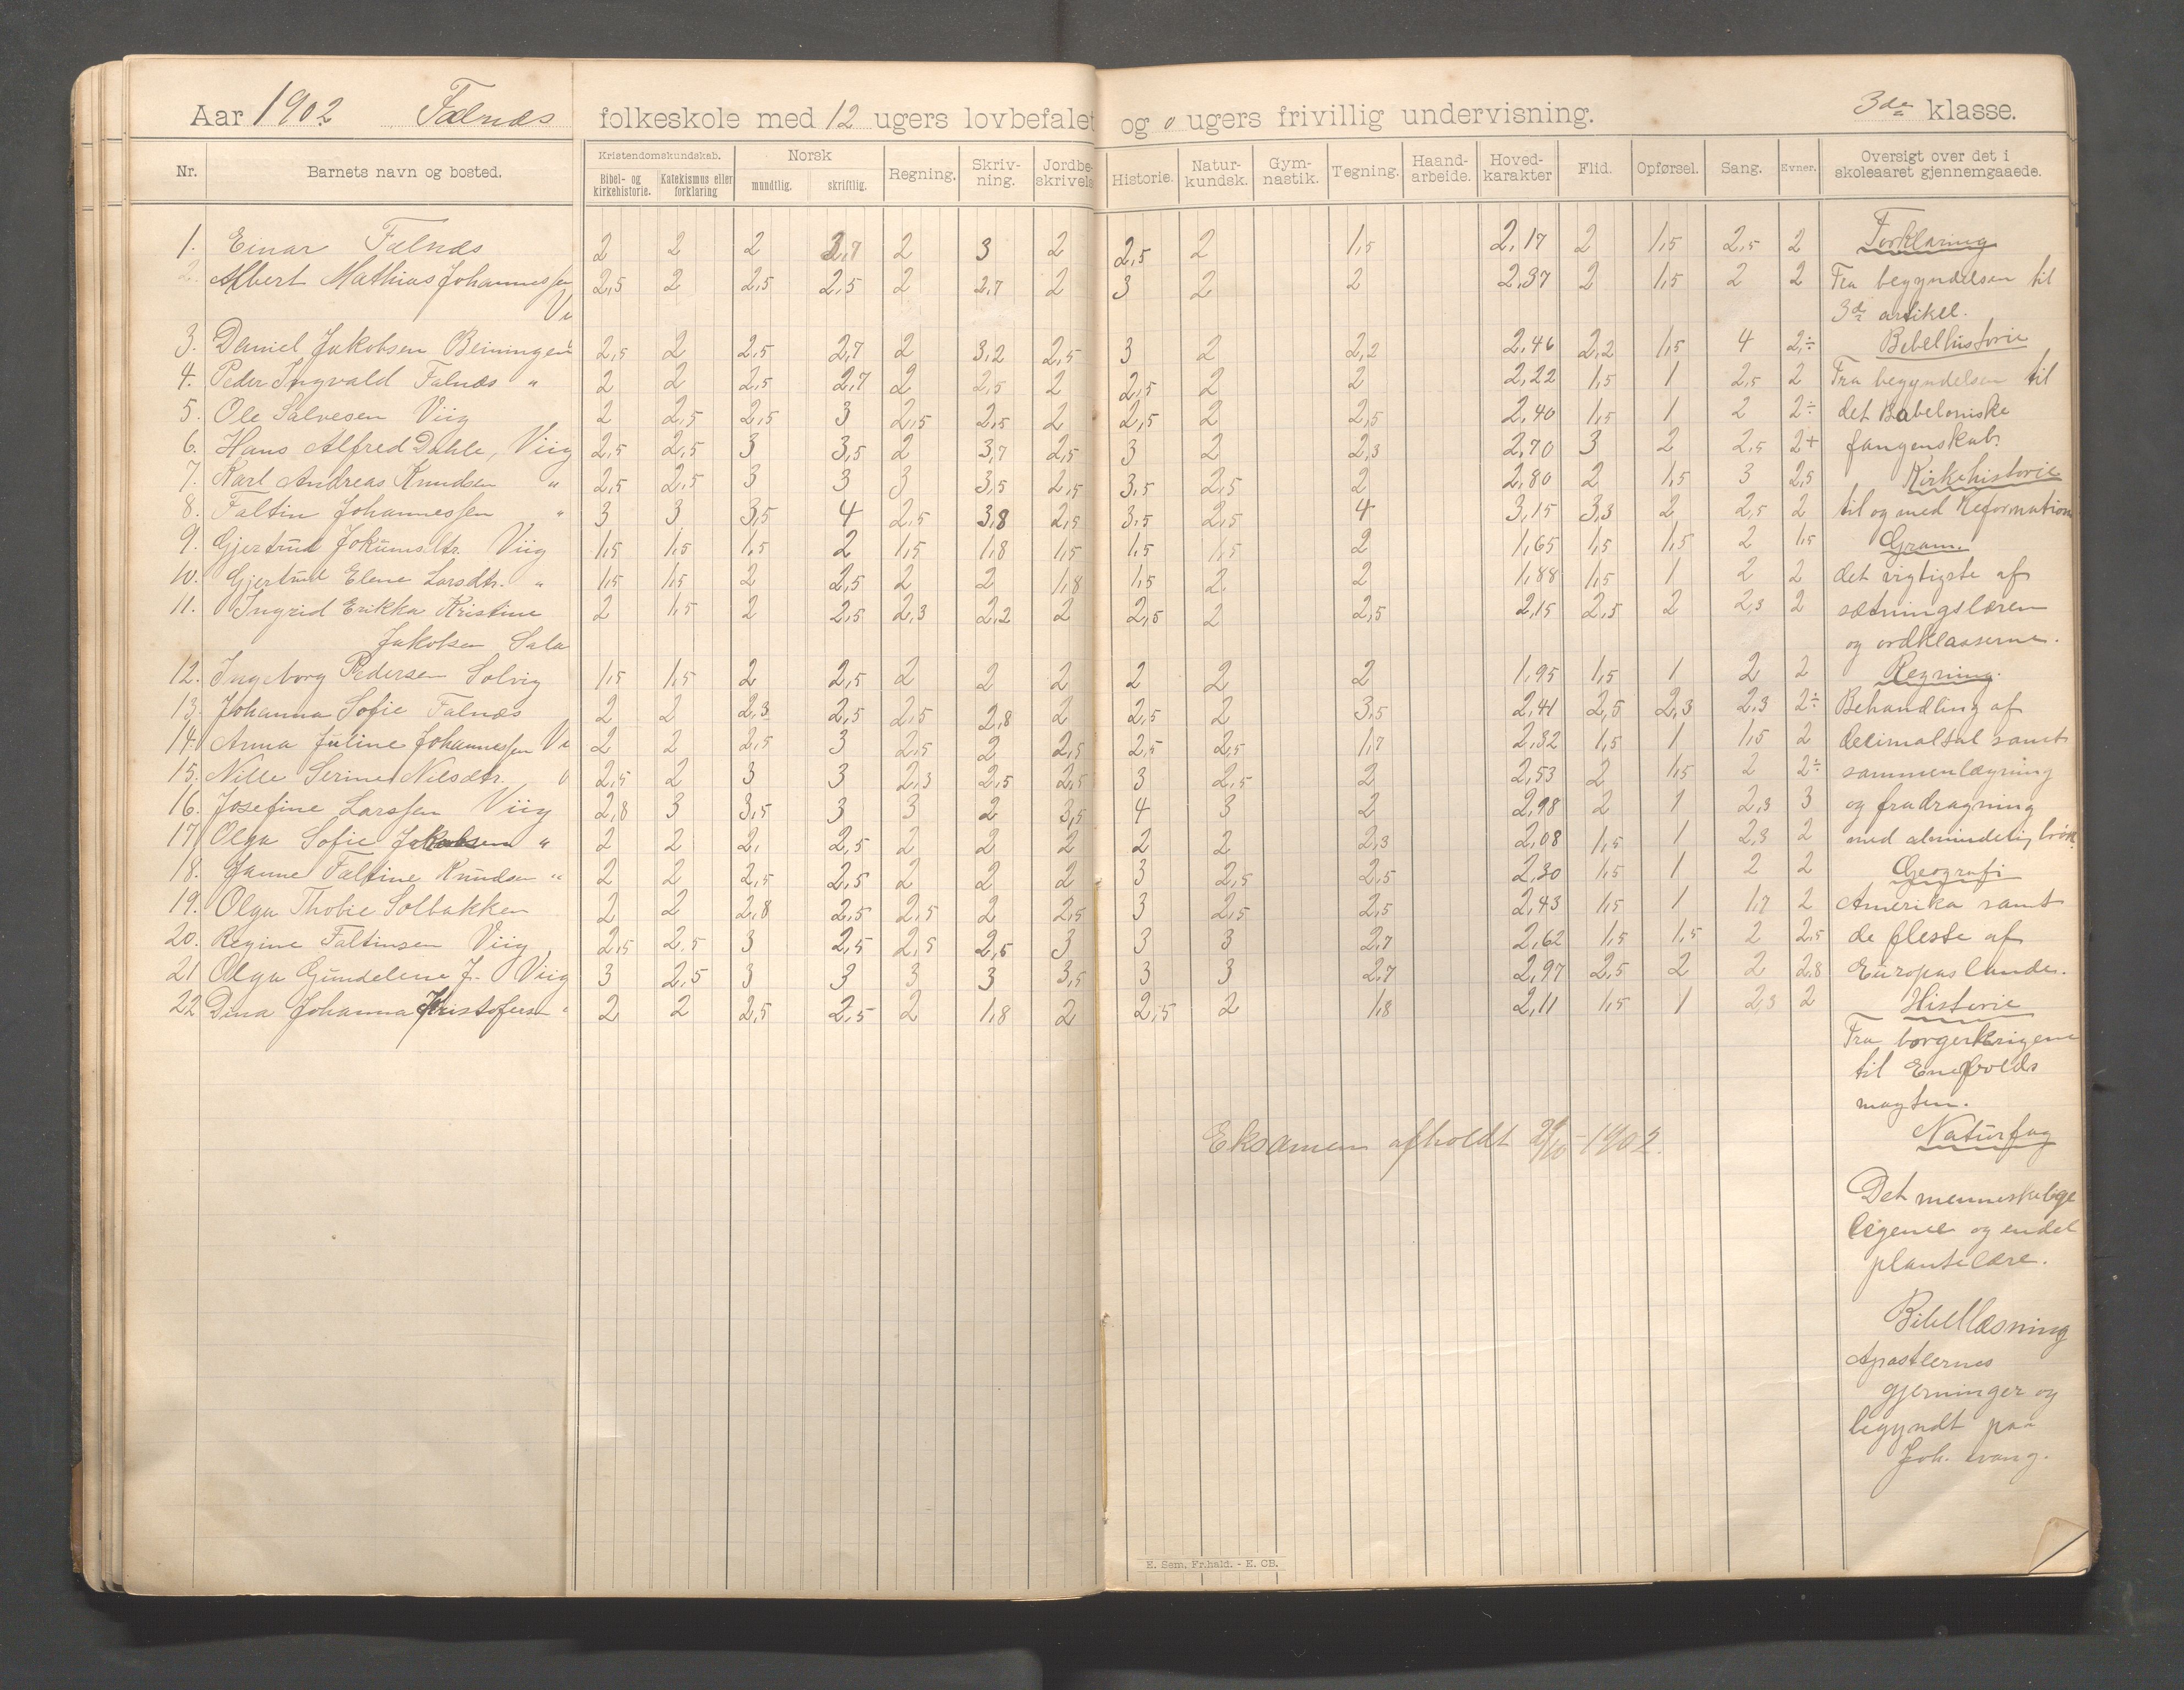 Aar 1902 Falnæs folkeskole med 12 ugers lovbefalet og 0 ugers frivillig undervisning. 3de klasse.
Nr. Barnets navn og bosted. Kristendomskundskab. Bibel- og kirkehistorie. Katekismus eller forklaring Norsk mundtlig. skriftlig. Regning. Skriv-ning. Jordbe-skrivels Historie. Natur-kundsk. Gym-nastik. Tegning. Haand-arbeide. Hoved-karakter Flid. Opførsel. Sang. Evner. Oversigt over det i skoleaaret gjennemgaaede.
1. Einar Falnæs 2 2 2 2,7 2 3 2 2,5 2 1,5 2,17 2 1,5 2,5 2 Forklaring
2. Albert Mathias Johannessen 2,5 2 2,5 2,5 2 2,7 2 3 2 2 2,37 2 1,5 2 2 Fra begyndelsen til
Vi 3de artikel.
3. Daniel Jakobsen Beiningen 2,5 2 2,5 2,7 2 3,2 2,5 3 2 2,2 2,46 2,2 1,5 4 2÷ Bibelhistorie
4. Peder Ingvald Falnæs " 2 2 2,5 2,7 2 2,5 2 2,5 2 2 2,22 1,5 1 2,5 2 Fra begyndelsen til
5. Ole Salvesen Viig 2 2,5 2,5 3 2,5 2,5 2 2,5 2 2,5 2,40 1,5 1 2 2÷ det Babeloniske
6. Hans Alfred Dahle, Viig 2,5 2,5 3 3,5 2 3,7 2,5 3 2 2,3 2,70 3 2 2,5 2+ fangenskab.
7. Karl Andreas Knudsen " 2,5 2,5 3 3 3 3,5 2,5 3,5 2,5 2 2,80 2 1,5 3 2,5 Kirkehistorie
8. Faltin Johannessen " 3 3 3,5 4 2,5 3,8 2,5 3,5 2,5 4 3,15 3,3 2 2,5 2 til og med Reformation
9. Gjertrud Jokumsdtr. Viig 1,5 1,5 1,5 2 1,5 1,8 1,5 1,5 1,5 2 1,65 1,5 1,5 2 1,5 Gram.
10. Gjertrud Elene Larsdtr. " 1,5 1,5 2 2,5 2 2 1,8 1,5 2 2 1,88 1,5 1 2 2 det vigtigste af
11. Ingrid Erikka Kristine 2 1,5 2 2,5 2,3 2,2 2 2,5 2 2,5 2,15 2,5 2 2,3 2 sætningslæren
Jakobsen Sala og ordklasserne.
12. Ingeborg Pedersen Solvig 1,5 1,5 2 2,5 2 2 2 2 2 2 1,95 1,5 1 2 2 Regning.
13. Johanna Sofie Falnæs 2 2 2,3 2,5 2,5 2,8 2 2,5 2 3,5 2,41 2,5 2,3 2,3 2÷ Behandling af
14. Anna Juline Johannessen Vi 2 2 2,5 3 2,5 2 2,5 2,5 2,5 1,7 2,32 1,5 1 1,5 2 decimaltal samt
15. Nille Serine Nilsdtr. 2,5 2 3 3 2,3 2,5 2,5 3 2,5 2 2,53 2 1,5 2 2÷ sammenlægning
16. Josefine Larssen Viig 2,8 3 3,5 3 3 2 3,5 4 3 2 2,98 2 1 2,3 3 og fradragning
17. Olga Sofie Jakobsen " 2 2 2, 2,5 2 2 2 2 2 2,3 2,08 1,5 1 2,3 2 med almindelig brøk.
18. Janne Faltine Knudsen " 2 2 2,5 2,5 2 2 2 3 2,5 2,5 2,30 1,5 1 2 2 Geografi
19. Olga Thobie Solbakken 2 2 2,8 2,5 2,5 2 2,5 3 2,5 2,5 2,43 1,5 1 1,7 2 Amerika samt
20. Regine Faltinsen Viig 2,5 2,5 3 2,5 2,5 2,5 3 3 3 2,7 2,62 1,5 1,5 2 2,5 de fleste af
21 Olga Gundelene J. Viig 3 2,5 3 3 3 3 3,5 3 3 2,7 2,97 2,5 2 2 2,8 Europas lande.
22 Dina Johanna Kristofersen " 2 2 2,5 2,5 2 1,8 2 2,5 2 1,8 2,11 1,5 1 2,3 2 Historie
Fra borgerkrigene
til Enevolds
magten.
Eksamen afholdt 1902.
Naturfag
Det menneskelige
legeme og endel
plantelære.
Bibellæsning
Apostlernes
gjerninger og
begyndt paa
Joh. evang.
E. Sem, Fr.hald. - E. CB.